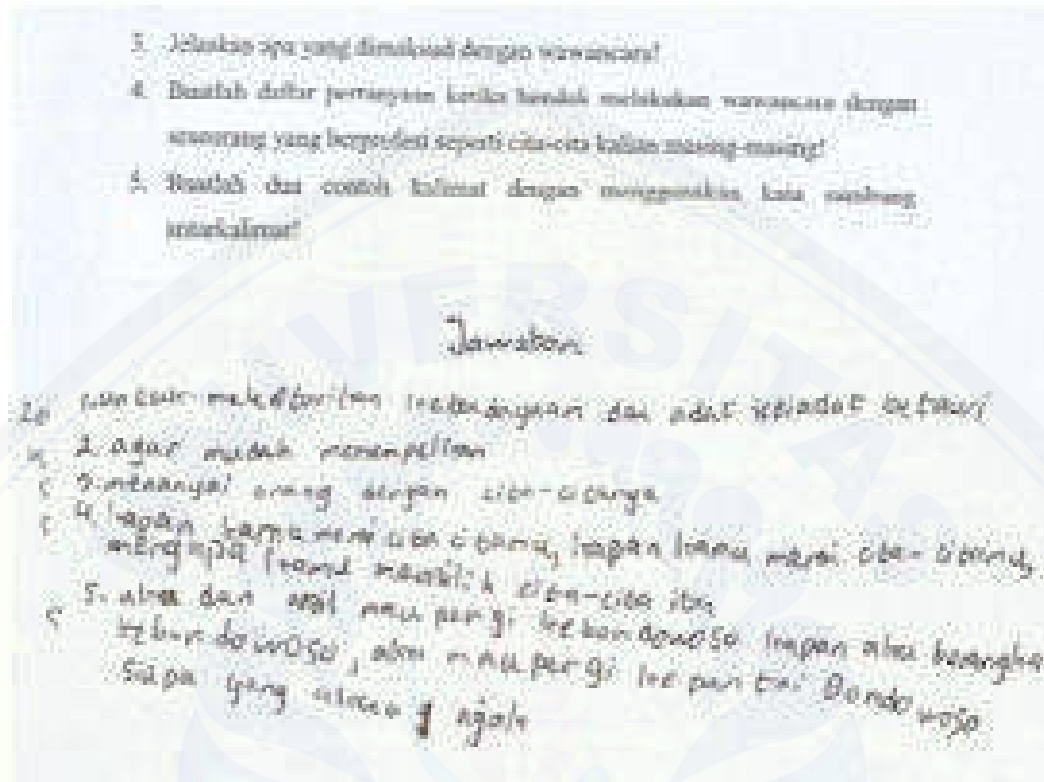 3. Jelaskan apa yang dimaksud dengan wawancara!
4. Buatlah daftar pertanyaan ketika hendak melakukan wawancara dengan
seseorang yang berprofesi seperti cita-cita kalian masing-masing!
5. Buatlah dua contoh kalimat dengan menggunakan kata sambung
antarkalimat!
UNIVERSITAS
Jawaban
20 1. untuk melestarikan kebudayaan dan adat istiadat betawi
2. agar mudah menempelkan
5 3. menanyai orang dengan cita-citanya
5 4. kapan kamu cita citamu, kapan kamu cita-citamu,
mengapa kamu memilih cita-cita itu
5 5. aku dan adil mau pergi kebondowoso kapan aku
kebondowoso, aku mau pergi ke pantai Bondowoso
Siapa yang